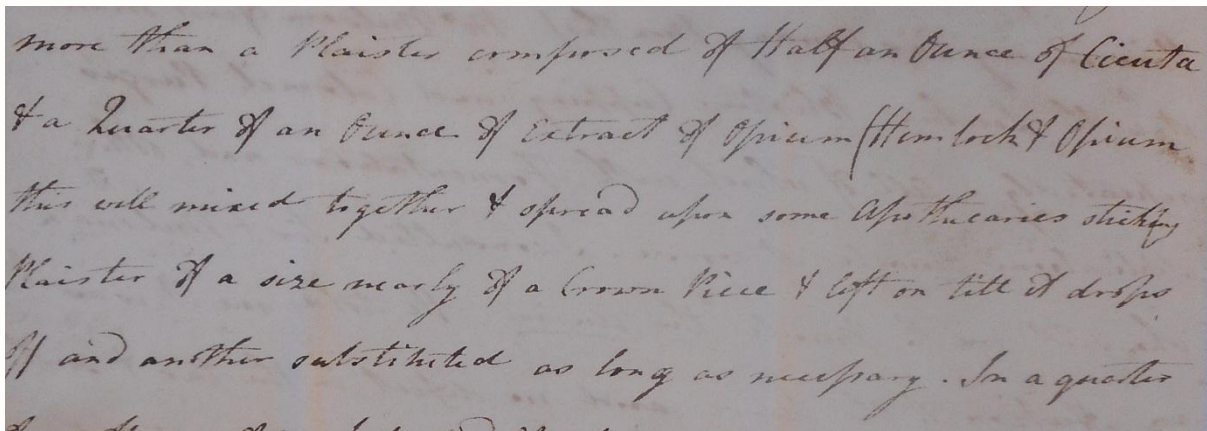 more than a Plaister composed of Half an Ounce of Cicuta
& a Quarter of an Ounce of Extract of Opium (Hemlock & Opium
this well mixed together & spread upon some Apothecaries sticking
Plaister of a size nearly of a Crown Piece & left on till it drops
off and another substituted as long as necessary. In a quarter